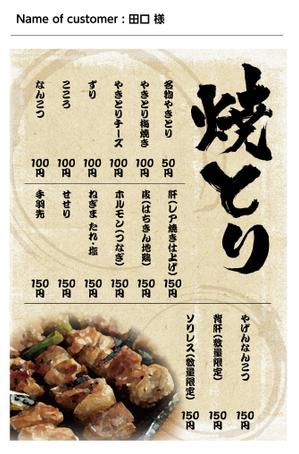 Name of customer : 田口 様
焼とり
名物やきとり 50円
やきとり梅焼き 100円
やきとりチーズ 100円
ずり 100円
こころ 100円
なんこつ 100円
肝(レア焼き仕上げ) 150円
皮(はちきん地鶏) 150円
ホルモン(つなぎ) 150円
ねぎま たれ・塩 150円
せせり 150円
手羽先 150円
やげんなんこつ 150円
背肝(数量限定) 150円
ソリレス(数量限定) 150円